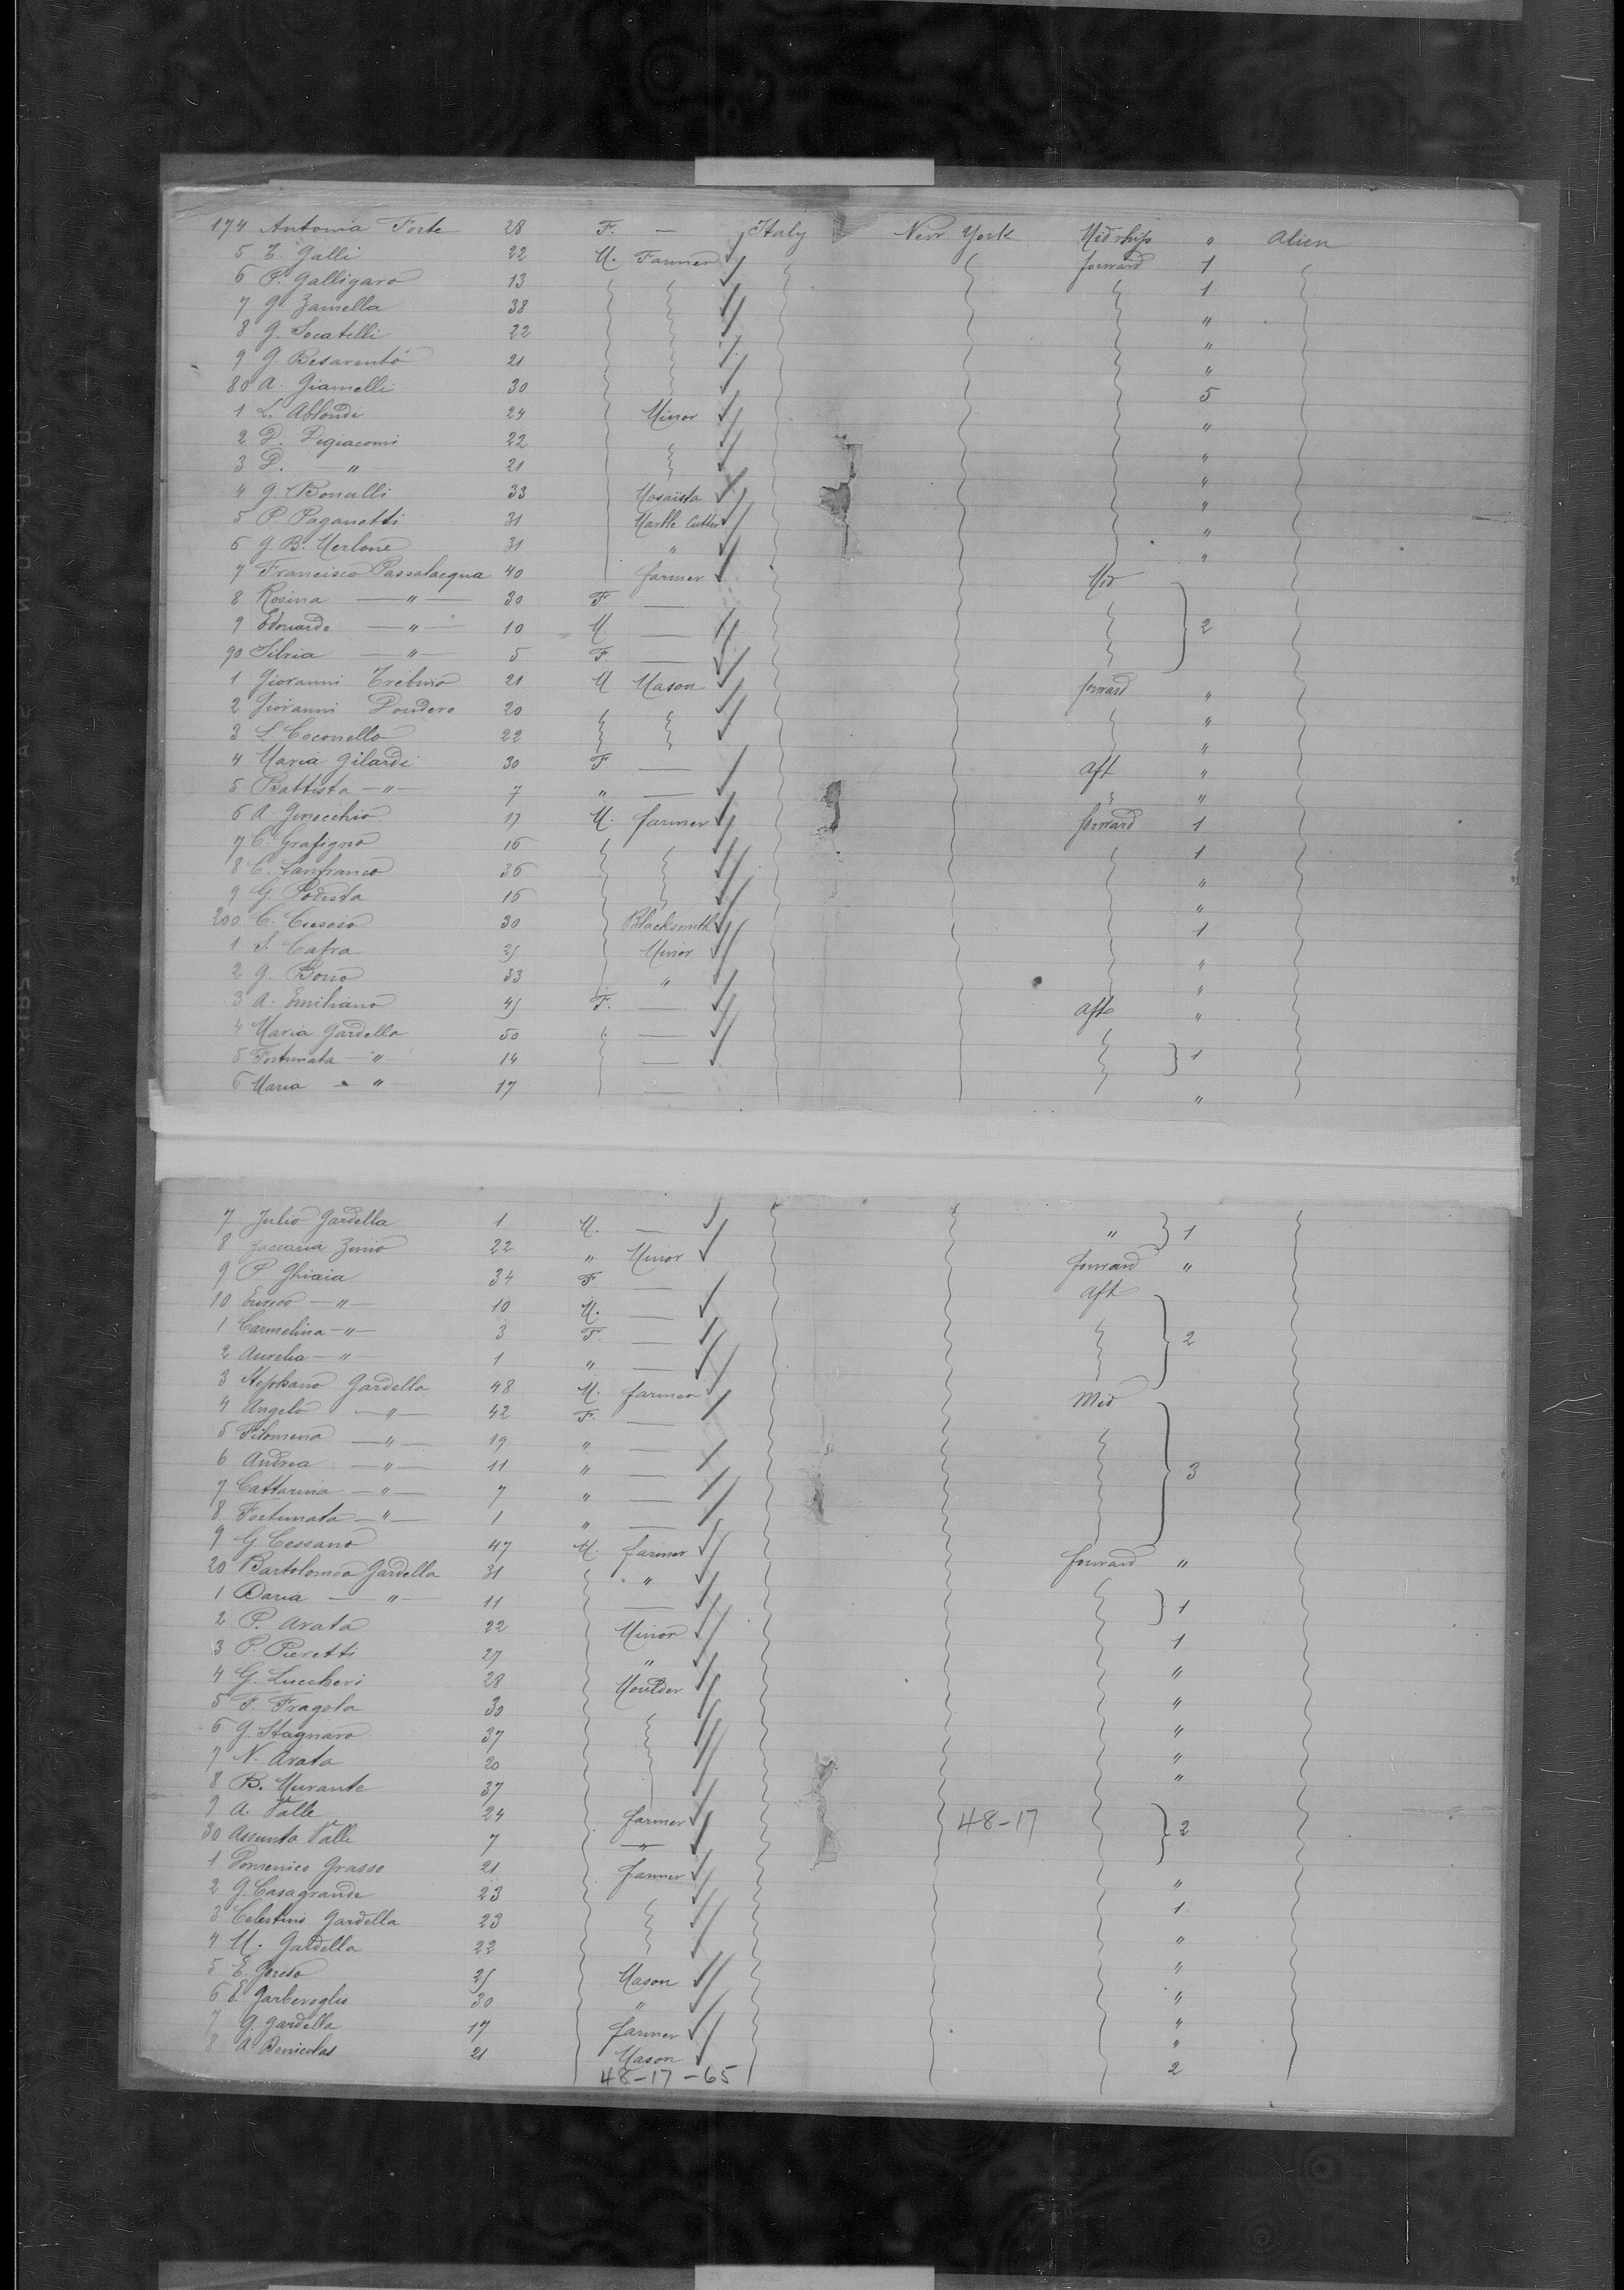 174 Antonia Forte 28 F. — Italy New York Midship " Alien
5 E. Galli 22 M. Farmer forward 1
6 P. Galligaro 13 1
7 G. Zamella 38 "
8 G. Locatelli 22 "
9 G. Besarento 21 "
80 A. Giamelli 30 5
1 L. Ablondi 24 Minor "
2 D. Degiacomi 22 "
3 D. — " — 21 "
4 G. Bonalli 33 Mosaista "
5 P. Paganetti 31 Marble Cutter "
6 G. B. Merlone 31 " "
7 Francisco Passalacqua 40 farmer Mid
8 Rosina — " — 30 F. —
9 Edouardo — " — 10 M — 2
90 Silvia — " — 5 F. —
1 Giovanni Trebino 21 M Mason forward "
2 Giovanni Pondero 20 "
3 L. Coconello 22 "
4 Maria Gilardi 30 F. — Aft "
5 Battista — " — 7 " — "
6 A. Ginocchio 17 M. farmer forward 1
7 C. Grafigna 16 1
8 C. Lanfranco 36 "
9 G. Podesta 16 "
200 C. Cuneo 30 Blacksmith 1
1 S. Cafra Minor "
2 G. Borio 33 " "
3 A. Emiliano F. — Aft "
4 Maria Gardella 50 " —
5 Fortunata — " 14 — 1
6 Maria — " — 17 — "
7 Julio Gardella 1 M. — " 1
8 Zaccaria Zinio 22 " Minor forward "
9 P. Ghiaia 34 F — Aft
10 Enrico — " — 10 M. —
1 Carmelina — " — 3 F. — 2
2 Aurelia — " — 1 " —
3 Stephano Gardella 48 M. farmer Mid
4 Angelo — " — 42 F. —
5 Filomena — " — 19 " —
6 Andrea — " — 11 " — 3
7 Cattarina — " — 7 " —
8 Fortunata — " — 1 " —
9 G. Cessano 47 M. farmer forward "
20 Bartolomeo Gardella 31 "
1 Daria — " — 11 — 1
2 P. Arata 22 Minor 1
3 P. Pieretti 27 " "
4 G. Luccheri 28 Moulder "
5 F. Fragola 30 "
6 G. Stagnaro 37 "
7 N. Arata 20 "
8 B. Murante 37
9 A. Valle 24 farmer 48-17 2
30 Assunta Valle 7 — " —
1 Domenico Grasso 21 farmer "
2 G. Casagrande 23 1
3 Celestino Gardella 23 "
4 M. Gardella 22 "
5 E. Mason "
6 E. Garberoglio 30 " "
7 G. Gardella 17 farmer "
8 A Denicolas 21 Mason 2
48-17-65